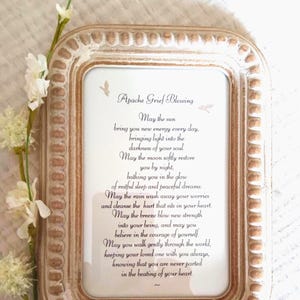 Apache Grief Blessing
May the sun
bring you new energy every day,
bringing light into the
darkness of your soul.
May the moon softly restore
you by night,
bathing you in the glow
of restful sleep and peaceful dreams.
May the rain wash away your worries
and cleanse the hurt that sits in your heart.
May the breeze blow new strength
into your being, and may you
believe in the courage of yourself.
May you walk gently through the world,
keeping your loved one with you always,
knowing that you are never parted
in the beating of your heart.